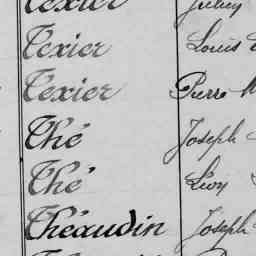 Texier Julien
Texier Louis
Texier Pierre M
Thé Joseph
Thé Levy
Théaudin Joseph